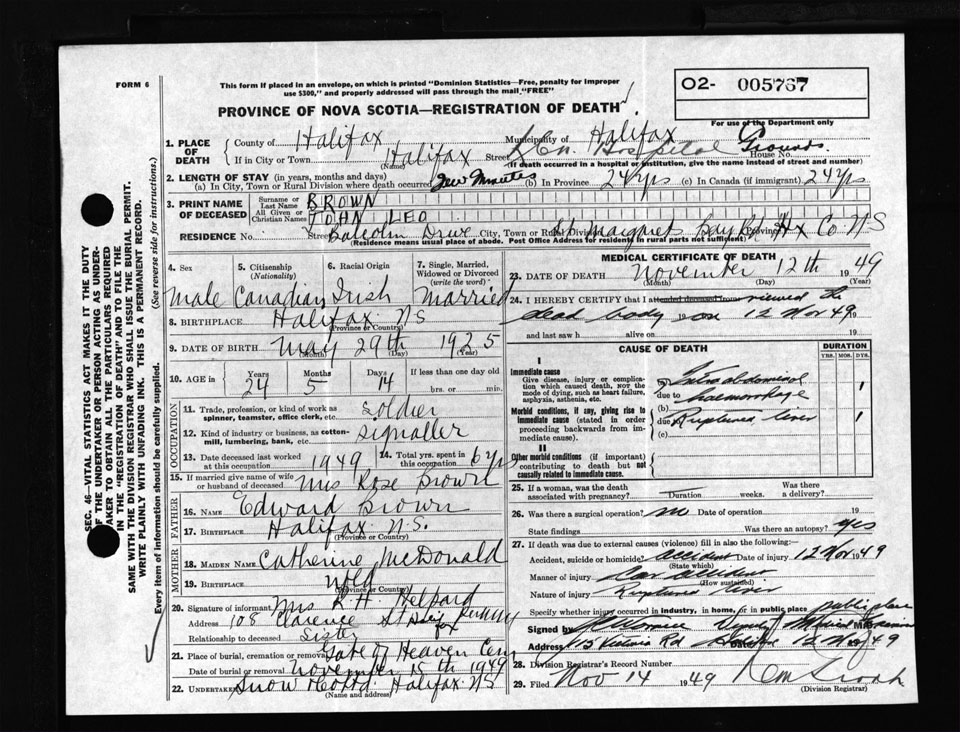 FORM 6
This form if placed in an envelope, on which is printed "Dominion Statistics—Free, penalty for improper
use $300," and properly addressed will pass through the mail "FREE"
O2- 005767
For use of the Department only
PROVINCE OF NOVA SCOTIA—REGISTRATION OF DEATH
1. PLACE OF DEATH County of Halifax Municipality of Halifax
If in City or Town Halifax (Name) Street Hospital Grounds. House No.
(If death occurred in a hospital or institution, give the name instead of street and number)
2. LENGTH OF STAY (in years, months and days)
(a) In City, Town or Rural Division where death occurred few minutes (b) In Province 24 yrs (c) In Canada (if immigrant) 24 yrs
3. PRINT NAME OF DECEASED Surname or Last Name BROWN
All Given or Christian Names JOHN LEO
RESIDENCE No. Street Balcolm Drive City, Town or Rural Division St Margrets Bay Rd Province Hx Co NS
(Residence means usual place of abode. Post Office Address for residents in rural parts not sufficient)
4. Sex 5. Citizenship (Nationality) 6. Racial Origin 7. Single, Married, Widowed or Divorced (write the word)
Male Canadian Irish Married
8. BIRTHPLACE Halifax NS
(Province or Country)
9. DATE OF BIRTH May 29th 1925
(Month) (Day) (Year)
10. AGE in Years Months Days If less than one day old
24 5 14 hrs. or min.
OCCUPATION
11. Trade, profession, or kind of work as spinner, teamster, office clerk, etc. Soldier
12. Kind of industry or business, as cotton-mill, lumbering, bank, etc. Signaller
13. Date deceased last worked at this occupation 1949 14. Total yrs. spent in this occupation 6 yrs
15. If married give name of wife or husband of deceased Mrs Rose Brown
FATHER
16. NAME Edward Brown
17. BIRTHPLACE Halifax N.S.
(Province or Country)
MOTHER
18. MAIDEN NAME Catherine McDonald
19. BIRTHPLACE Nfld
(Province or Country)
20. Signature of informant Mrs R. H.
Address 108 Clarence St Halifax
Relationship to deceased Sister
21. Place of burial, cremation or removal Gate of Heaven Cem
Date of burial or removal November 15th 1949
22. Undertaker Snow Co Ltd. Halifax NS
(Name and address)
MEDICAL CERTIFICATE OF DEATH
23. DATE OF DEATH November 12th 1949
(Month) (Day) (Year)
24. I HEREBY CERTIFY that I attended deceased from viewed the
dead body 19 on 12 Nov 49 19
and last saw h alive on 19
CAUSE OF DEATH DURATION
YRS. MOS. DYS.
I
Immediate cause
Give disease, injury or complication which caused death, not the mode of dying, such as heart failure, asphyxia, asthenia, etc.
(a) Intra abdominal
due to haemorrhage 1
Morbid conditions, if any, giving rise to immediate cause (stated in order proceeding backwards from immediate cause).
(b)
due to Ruptured liver 1
(c)
II
Other morbid conditions (if important) contributing to death but not causally related to immediate cause.
25. If a woman, was the death associated with pregnancy? Duration weeks. Was there a delivery?
26. Was there a surgical operation? no Date of operation 19
State findings Was there an autopsy? yes
27. If death was due to external causes (violence) fill in also the following:—
Accident, suicide or homicide? Accident Date of injury 12 Nov 1949
(State which)
Manner of injury Car accident
(How sustained)
Nature of injury Ruptured liver
Specify whether injury occurred in industry, in home, or in public place public place
Signed by Medical
Address Victoria Rd Date 12 Nov 49
28. Division Registrar's Record Number
29. Filed Nov 14 1949
(Division Registrar)
SEC. 46—VITAL STATISTICS ACT MAKES IT THE DUTY
OF THE UNDERTAKER OR PERSON ACTING AS UNDER-
TAKER TO OBTAIN ALL THE PARTICULARS REQUIRED
IN THE "REGISTRATION OF DEATH" AND TO FILE THE
SAME WITH THE DIVISION REGISTRAR WHO SHALL ISSUE THE BURIAL PERMIT.
WRITE PLAINLY WITH UNFADING INK. THIS IS A PERMANENT RECORD.
Every item of information should be carefully supplied. (See reverse side for instructions.)